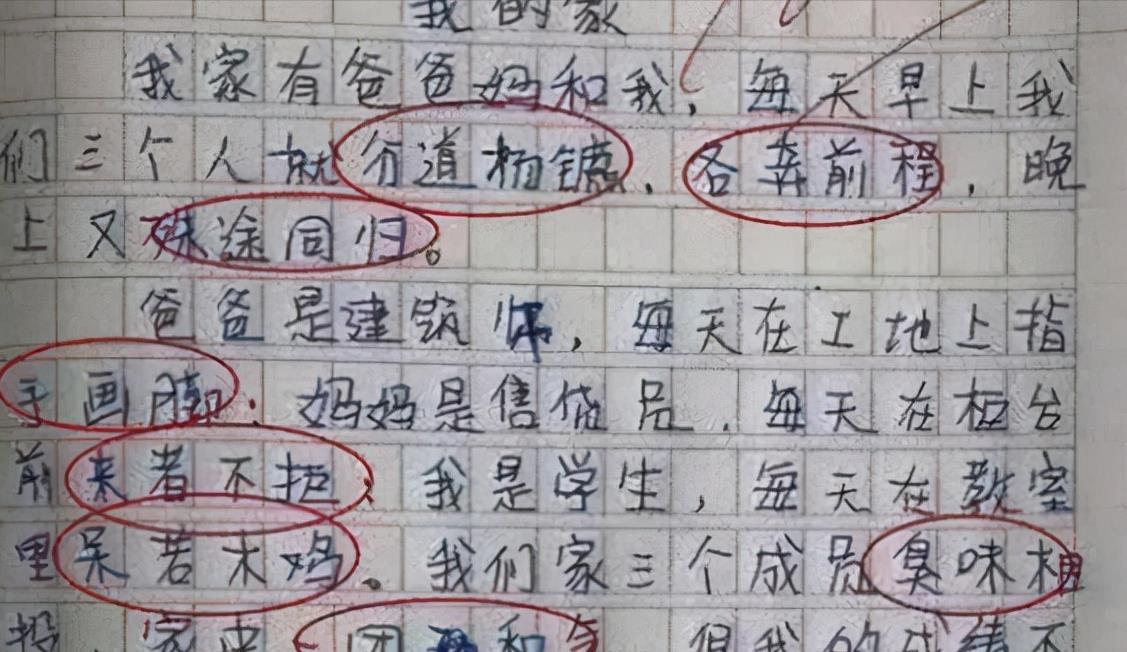 我的家
我家有爸爸妈和我,每天早上我
们三个人就分道杨镳,各奔前程,晚
上又殊途同归。
爸爸是建筑师,每天在工地上指
手画脚;妈妈是售货员,每天在柜台
前来者不拒;我是学生,每天在教室
里呆若木鸡。我们家三个成员臭味相
投,家中团和气 但我的成绩不